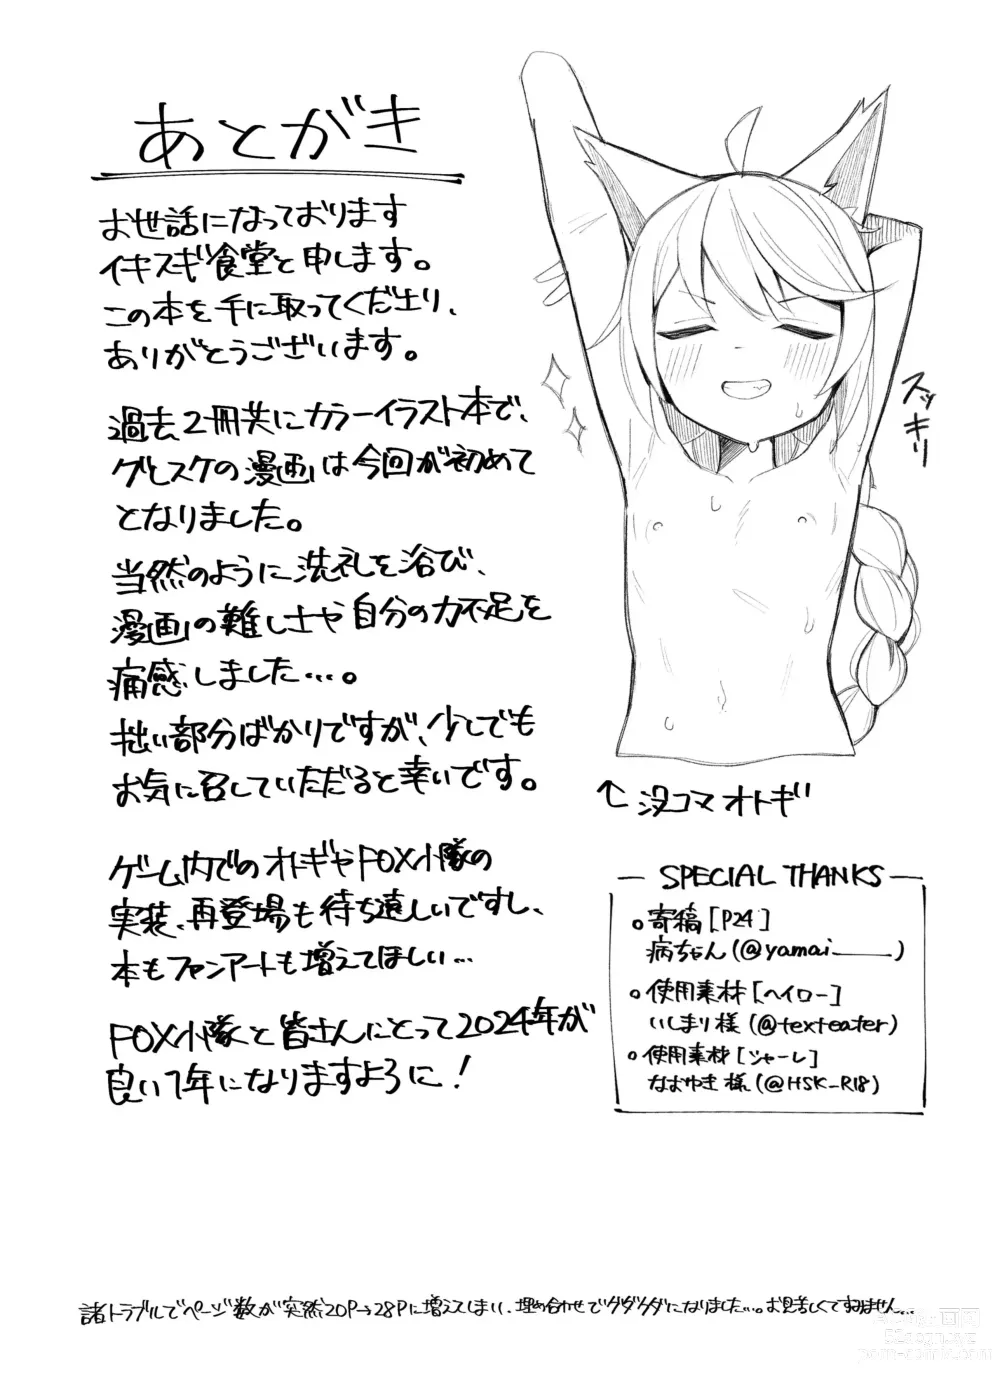 あとがき
お世話になっております
イキスギ食堂と申します。
この本を手に取ってくださり、
ありがとうございます。
過去2冊共にカラーイラスト本で、
グヒスケの漫画は今回が初めて
となりました。
当然のように洗礼を浴び、
漫画の難しさや自分の力不足を
痛感しました…。
拙い部分ばかりですが、少しでも
お気に召していただると幸いです。
ゲーム内でのオトギやFOX小隊の
実装、再登場も待ち遠しいですし、
本もファンアートも増えてほしい…
FOX小隊と皆さんにとって2024年が
良い1年になりますように!
スッキリ
↑没コマオトギ
SPECIAL THANKS
○寄稿[P24]
病ちゃん(@yamai_____)
○使用素材[ヘイロー]
いしまり様(@texteater)
○使用素材[シャーレ]
なおゆき様(@HSK_R18)
諸トラブルでページ数が突然20P→28Pに増えてしまい、埋め合わせでグダグダになりました…。お見苦しくてすみません…